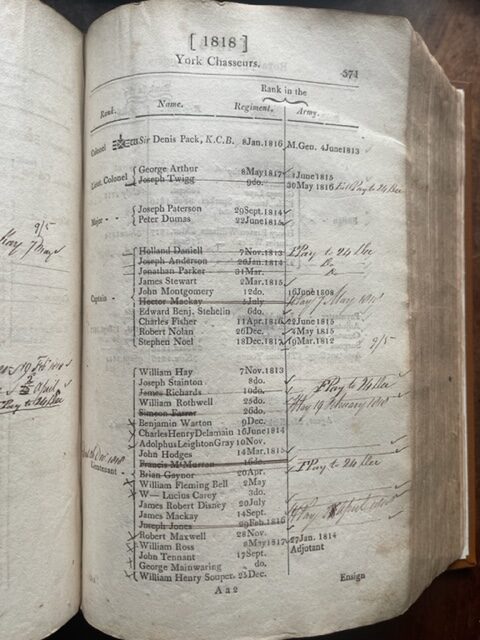 [ 1818 ]
York Chasseurs.
371
Rank in the
Rank. Name. Regiment. Army.
Colonel Sir Denis Pack, K.C.B. 8Jan.1816 M.Gen. 4June1813
Lieut. Colonel George Arthur 8May1817 1June1815
Joseph Twigg 9do. 30May 1816 Pay to 24 Dec
Major - Joseph Paterson 29Sept.1814
Peter Dumas 22June1815
9/5
Pay 7 May
Holland Daniell 7Nov.1813 Pay to 24 Dec
Joseph Anderson 20Jan.1814 Do
Jonathan Parker 31Mar.
James Stewart 2Mar.1815
Captain - John Montgomery 12do. 16June1808
Hector Mackay 5July Pay 7 May 1818
Edward Benj. Stehelin 6do.
Charles Fisher 11Apr.1816 22June1815
Robert Nolan 26Dec. 4May 1815
Stephen Noel 18Dec.1817 19Mar.1812 9/5
William Hay 7Nov.1813
Joseph Stainton 8do.
James Richards 10do. Pay to 24 Dec
William Rothwell 25do. Pay 19 February 1818
Simeon Farrar 26do.
Benjamin Warton 9Dec.
Charles Henry Delamain 16June1814
Adolphus Leighton Gray 10Nov.
John Hodges 14Mar.1815
Lieutenant - Francis McMurran 16do.
Brian Gaynor 20Apr. Pay to 24 Dec
William Fleming Bell 2May
W— Lucius Carey 3do.
James Robert Disney 20July
James Mackay 14Sept.
Joseph Jones 29Feb.1816 Pay
Robert Maxwell 28Nov.
William Ross 8May1817 27Jan. 1814
Adjutant
John Tennant 17Sept.
George Mainwaring do.
William Henry Souper. 25Dec.
A a 2
Ensign